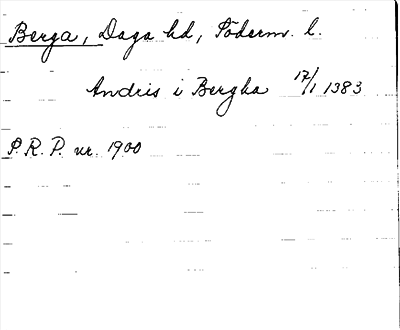 Berga, Daga hd, Söderm. l.
Andris i Bergha 17/1 1383
S.R.P. nr. 1900